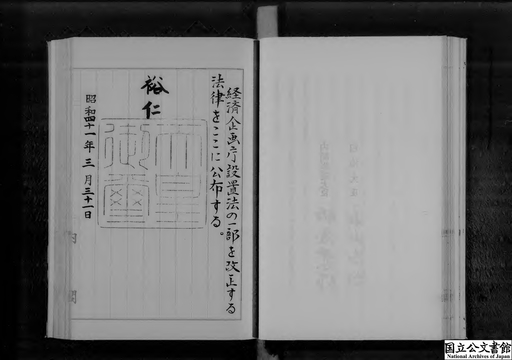 経済企画庁設置法の一部を改正する
法律をここに公布する。
裕仁
天皇御璽
昭和四十一年三月三十一日
内閣
国立公文書館
National Archives of Japan